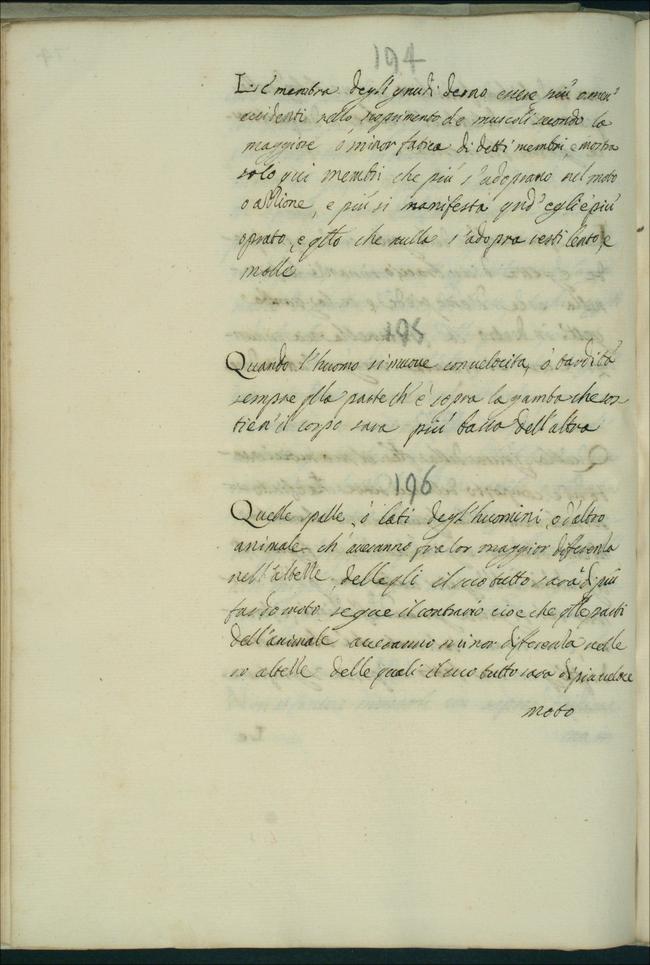 194
Le membra degl'gnudi deono essere più o men'
evidenti nello scoprimento de muscoli secondo la
maggiore ò minor fatica di detti membri, e mostra
solo qui membri che più s'adoprano nel moto
o attione, e più si manifesta qnd' egli è più
oprato, e qllo che nulla s'adopra resti lento, e
molle
195
Quando l'huomo si muove con velocità, ò tardità
sempre qlla parte ch' è sopra la gamba che sos=
tien' il corpo sara più bassa dell'altra
196
Quelle spalle, ò lati degl'huomini, o d'altro
animale ch' averanno fra lor maggior differenza
nell'altezze, delle qli il suo tutto sarà di più
tardo moto segue il contrario cioe che qlle parti
dell'animale averanno minor differenza nelle
altezze delle quali il suo tutto sara di più veloce
moto